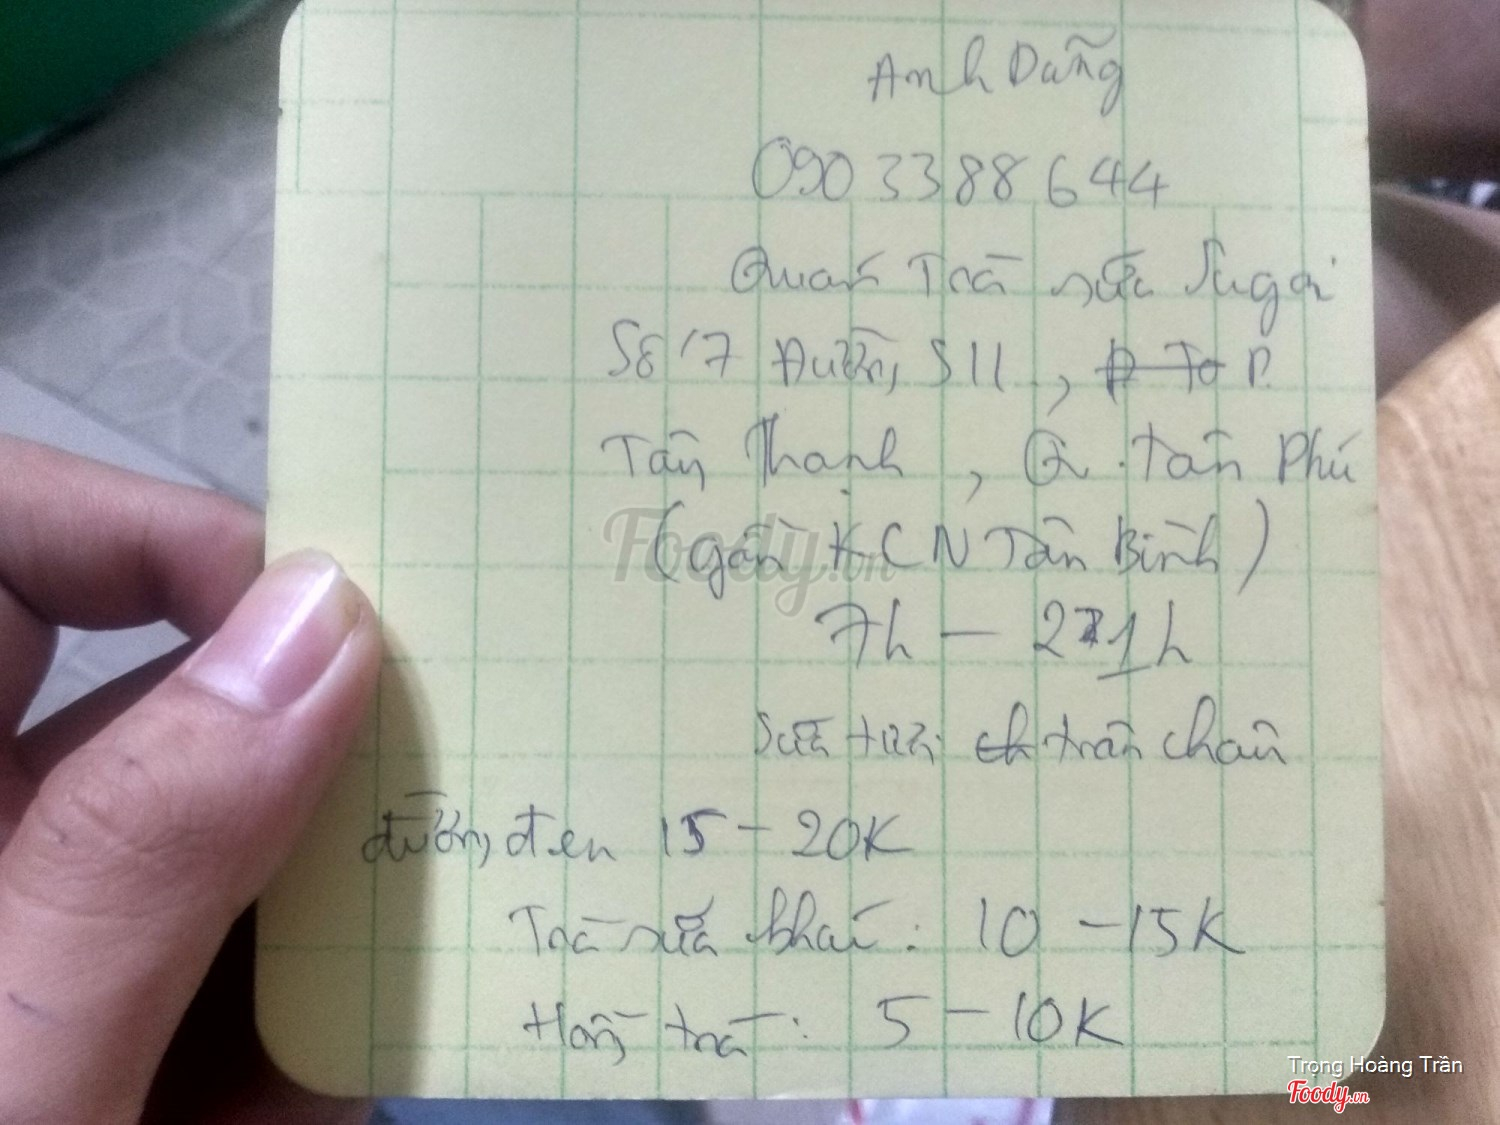 Anh Dũng
0903388644
Quán Trà sữa Ngơi
Số 17 Đường S11, P.
Tân Thạnh, Q. Tân Phú
(gần KCN Tân Bình)
7h - 21h
Sữa tươi trân châu
đường đen 15 - 20K
Trà sữa khác: 10 - 15K
Hồng trà: 5 - 10K
Foody.vn
Trọng Hoàng Trần
Foody.vn